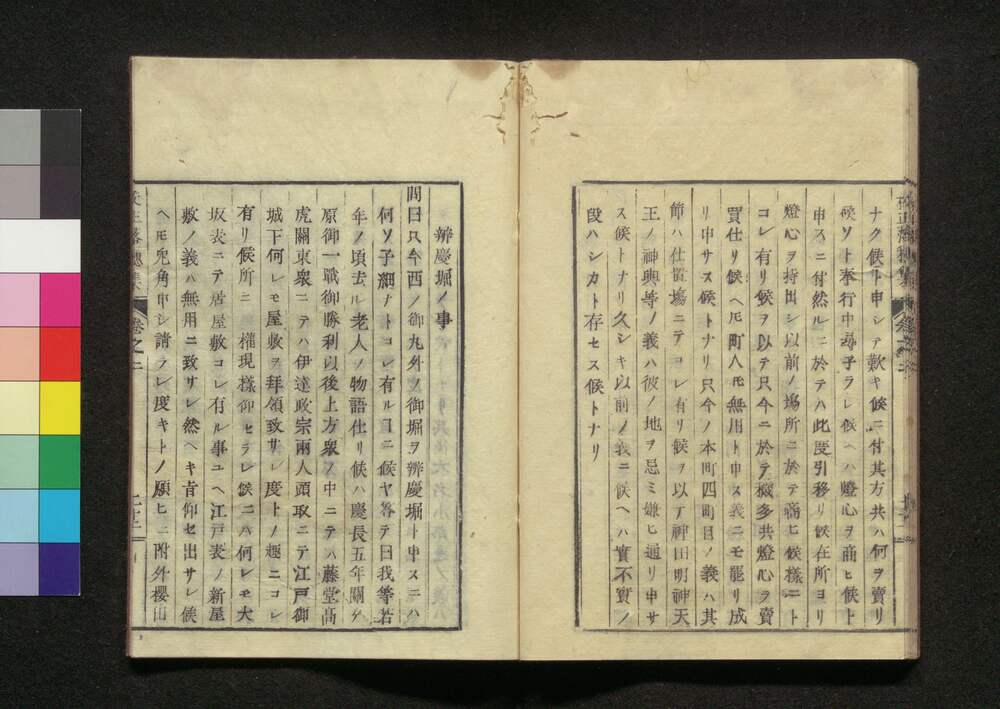 ナク候ト申シテ歎キ候ニ付其方共ハ何ヲ賣リ
候ソト奉行中尋子ラレ候ヘハ燈心ヲ商ヒ候ト
申スニ付然ルニ於テハ此度引移リ候在所ヨリ
燈心ヲ持出シ以前ノ塲所ニ於テ商ヒ候樣ニト
コレ有リ候ヲ以テ只今ニ於テ機多共燈心ヲ賣
買仕リ候ヘ𪜈町人𪜈無用ト申ス義ニモ罷リ成
リ申サス候トナリ只今ノ本町四町目ノ義ハ其
節ハ仕置塲ニテコレ有リ候ヲ以丁神田明神天
王ノ神輿等ノ義ハ彼ノ地ヲ忌ミ嫌ヒ通リ申サ
ス候トナリ久シキ以前ノ義ニ候ヘハ實不實ノ
段ハシカト存セス候トナリ
辨慶堀ノ事
問曰只今西ノ御丸外ノ御堀ヲ辨慶堀ト申スニハ
何ソ子細ナトコレ有ルヿニ候ヤ答テ曰我等若
年ノ頃去ル老人ノ物語仕リ候ハ慶長五年關ケ
原御一戰御勝利以後上方衆ノ中ニテハ藤堂高
虎關東衆ニテハ伊達政宗兩人頭取ニテ江戸御
城下何レモ屋敷ヲ拜領致サレ度トノ趣ニコレ
有リ候所ニ權現樣仰セラレ候ニハ何レモ大
坂表ニテ居屋敷コレ有ル事ユヘ江戸表ノ新屋
敷ノ義ハ無用ニ致サレ然ヘキ旨仰セ出サレ候
ヘ𪜈兎角申シ請ラレ度キトノ願ヒニ附外櫻田
卷之二